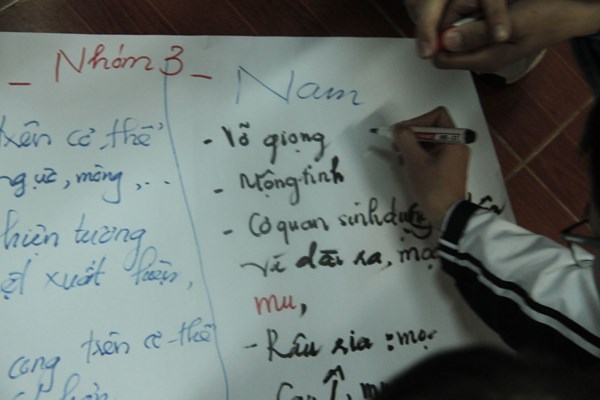 _ Nhóm 3 _
trên cơ thể
ngực, mông, ...
hiện tượng
xuất hiện,
cang trên cơ thể
Nam
- Vỡ giọng
- Mộng tinh
- Cơ quan sinh dục
dài ra, mọc
mu,
- Râu ria : mọc